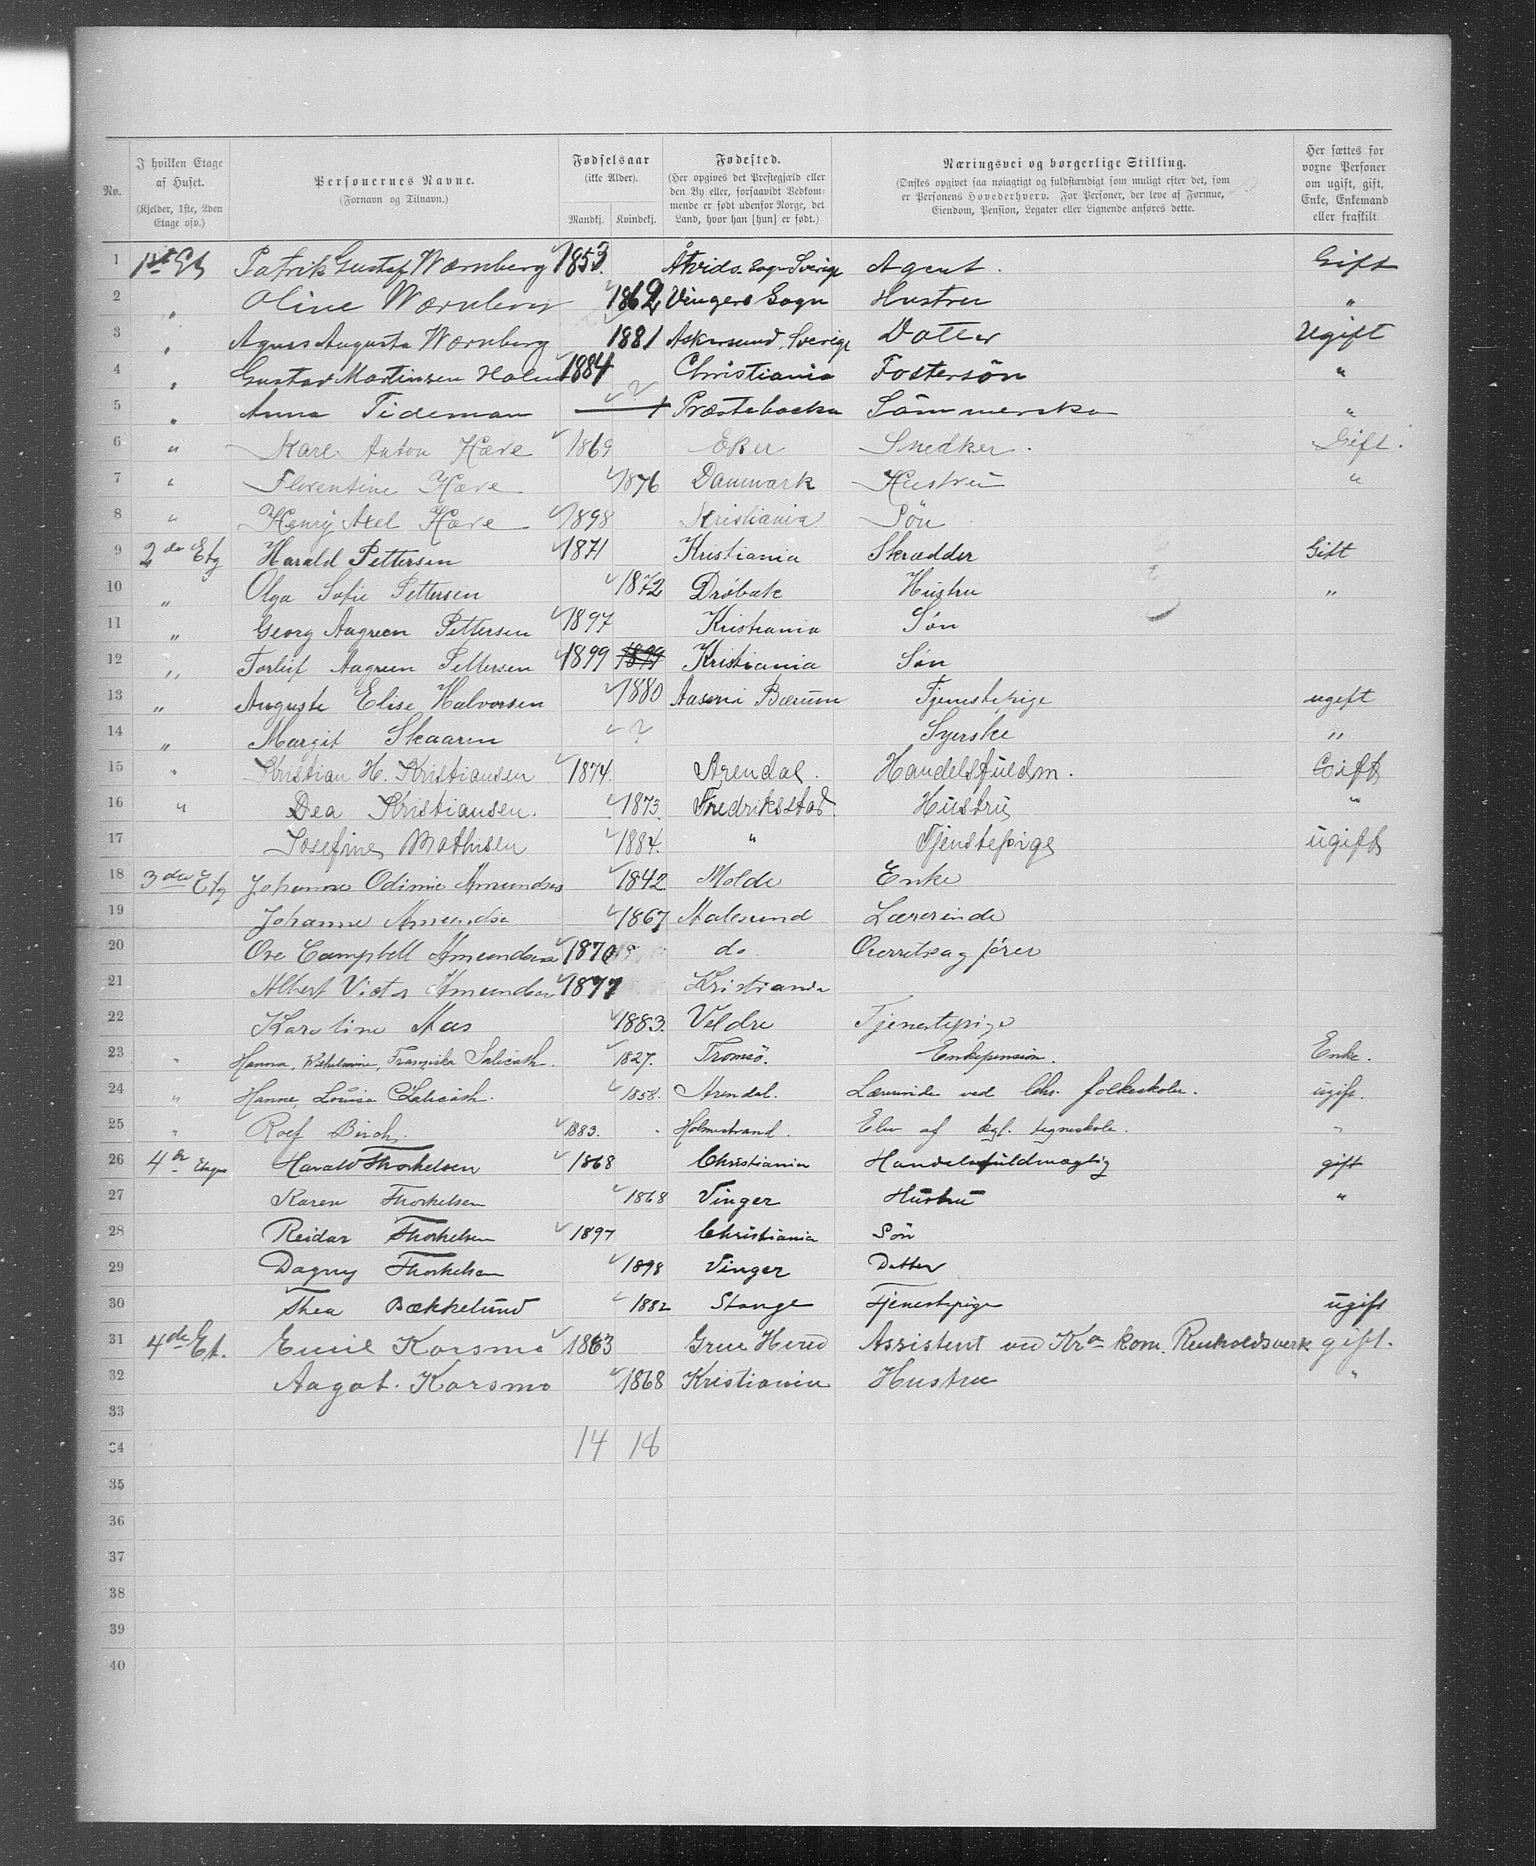 No.
I hvilken Etage af Huset. (Kjelder, 1ste, 2den Etage osv.)
Personernes Navne. (Fornavn og Tilnavn.)
Fødselsaar (ikke Alder). Mandkj. Kvindekj.
Fødested. (Her opgives det Prestegjæld eller den By eller, forsaavidt Vedkommende er født udenfor Norge, det Land, hvor han [hun] er født.)
Næringsvei og borgerlige Stilling. (Ønskes opgivet saa nøiagtigt og fuldstændigt som muligt efter det, som er Personens Hovederhverv. For Personer, der leve af Formue, Eiendom, Pension, Legater eller Lignende anføres dette.
Her sættes for voxne Personer om ugift, gift, Enke, Enkemand eller fraskilt
1 1st Etg Patrik Gustaf Wærnberg 1853. Åtvids. Sogn Sverige Agent. Gift
2 „ Oline Wærnberg 1862 Vingers Sogn Hustru „
3 „ Agnes Augusta Wærnberg 1881 Askersund, Sverige Datter Ugift
4 „ Gustav Martinsen Holm 1884 Christiania Fostersøn "
5 „ Anna Tideman ? Præstebacka Sømmerska "
6 " Karl Anton Hære 1869 Eker Snedker. Gift.
7 " Florentine Hære 1876 Danmark Hustru "
8 " Henry Axel Hære 1898 Kristiania Søn
9 2de Etg Harald Pettersen 1871 Kristiania Skrædder Gift
10 „ Olga Sofie Pettersen 1872 Drøbak Hustru „
11 „ Georg Aagreen Pettersen 1897 Kristiania Søn
12 „ Torleif Aagreen Pettersen 1899 1899 Kristiania Søn
13 „ Auguste Elise Halvorsen 1880 Bærum Tjenestepige ugift
14 „ Margit Skaaren ? Syerske „
15 " Kristian H. Kristiansen 1874 Arendal. Handelsfuldm. Gift
16 " Dea Kristiansen. 1873. Fredriksstad. Hustru "
17 Josefine Mathisen 1884. " Tjenestepige ugift
18 3die Etg Johanne Odinie Amundsen 1842 Molde Enke
19 Johanne Amundsen 1867 Aalesund Lærerinde
20 Ove Campbell Amundsen 1870 do. Overretssagfører
21 Albert Victor Amundsen 1877 Kristiania
22 Karoline Aas 1883. Veldre Tjenestepige
23 " Hanna, Wilhelmine, Franziska Salicath. 1827. Tromsø. Enkepension. Enke.
24 " Hanne, Louise Salicath. 1858. Arendal. Lærerinde ved Chr. folkeskoler. ugift.
25 " Rolf Birch. 1883. Holmestrand. Elev af kgl. tegneskole. "
26 4de Etage Harald Thorkelsen 1868 Christiania Handelsfuldmægtig gift
27 Karen Thorkelsen 1868 Vinger Hustru "
28 Reidar Thorkelsen 1897 Christiania Søn
29 Dagny Thorkelsen 1898 Vinger Datter
30 Thea Bækkelund 1882 Stange Tjenestepige ugift
31 4de Et. Emil Korsmo 1863 Grue Hered Assistent ved Kra kom. Renholdsverk gift.
32 Aagot. Korsmo 1868 Kristiania Hustru "
33
34 14 18
35
36
37
38
39
40